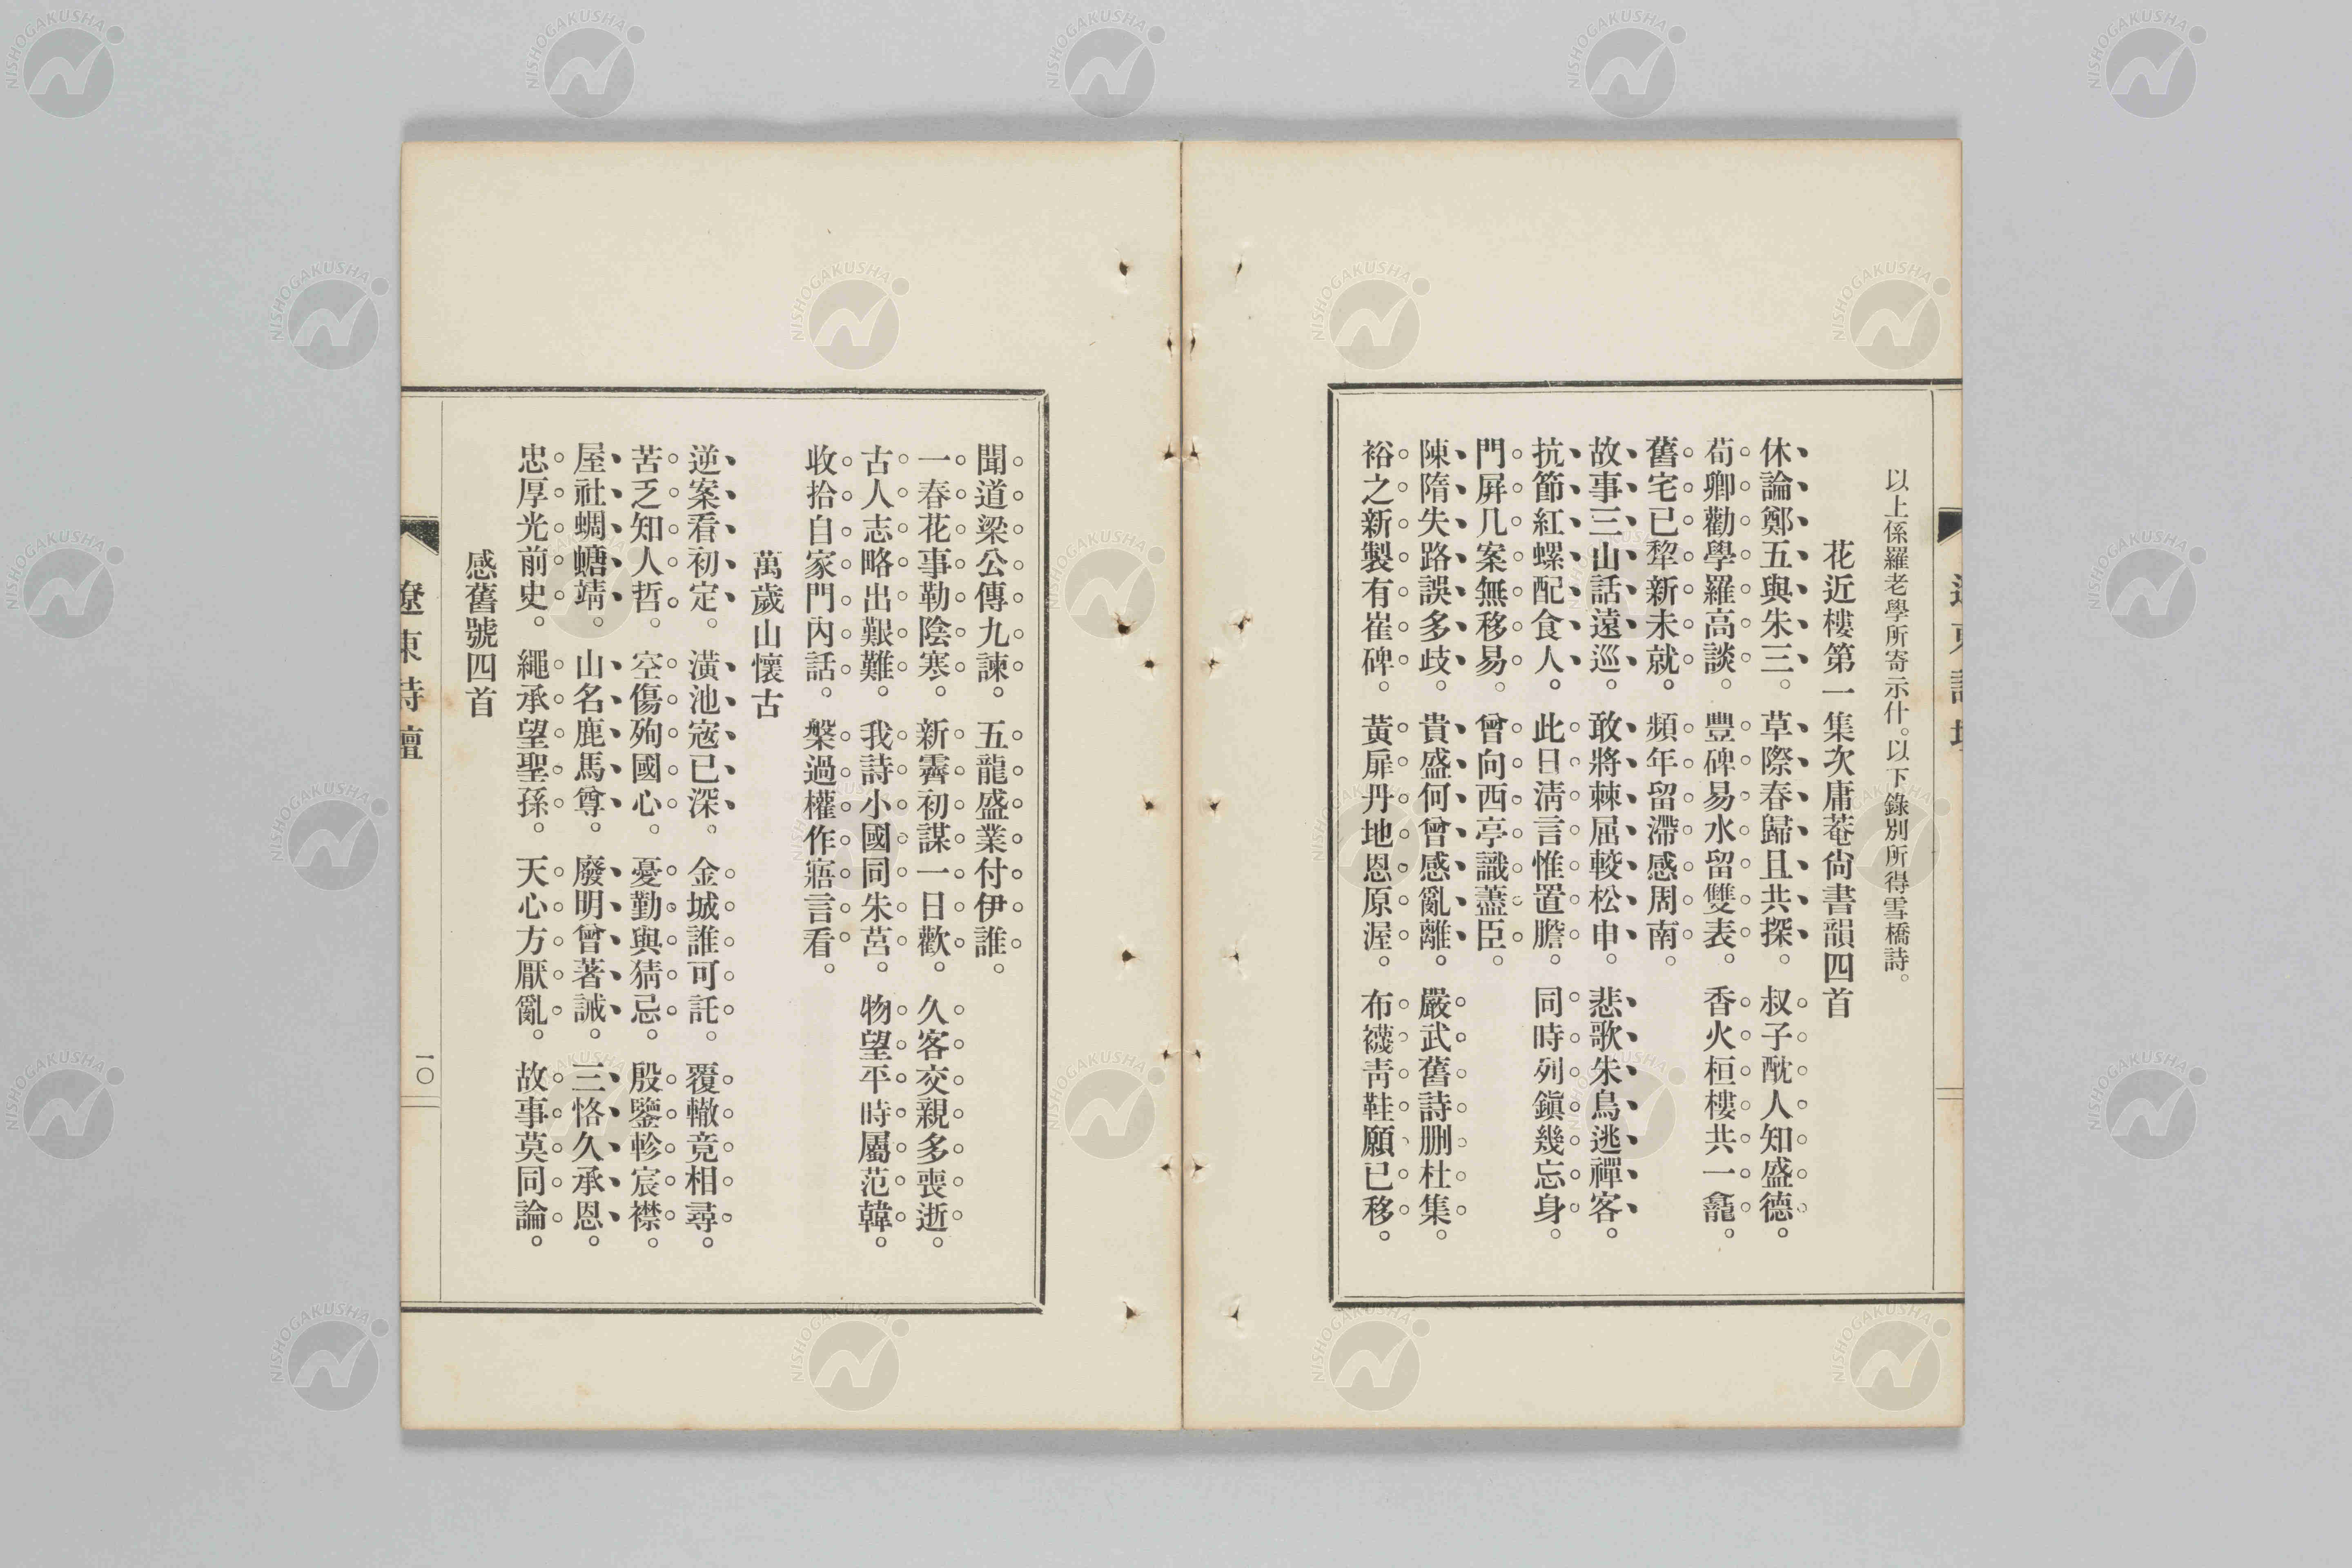 以上係羅老學所寄示什。以下錄別所得雪橋詩。
花近樓第一集次庸菴尙書韻四首
休論鄭五與朱三。草際春歸且共探。叔子酖人知盛德。
荀卿勸學羅高談。豐碑易水留雙表。香火桓樓共一龕。
舊宅已犂新未就。頻年留滯感周南。
故事三山話遠巡。敢將棘屈較松申。悲歌朱鳥逃禪客。
抗節紅螺配食人。此日淸言惟置膽。同時列鎭幾忘身。
門屛几案無移易。曾向西亭識藎臣。
陳隋失路誤多歧。貴盛何曾感亂離。嚴武舊詩删杜集。
裕之新製有崔碑。黃扉丹地恩原渥。布襪靑鞋願已移。
聞道梁公傳九諫。五龍盛業付伊誰。
一春花事勒陰寒。新霽初謀一日歡。久客交親多喪逝。
古人志略出艱難。我詩小國同朱莒。物望平時屬范韓。
收拾自家門內話。槃過權作寤言看。
萬歲山懷古
逆案看初定。潢池寇已深。金城誰可託。覆轍竟相尋。
苦乏知人哲。空傷殉國心。憂勤與猜忌。殷鑒軫宸襟。
屋社蜩螗靖。山名鹿馬尊。廢明曾著誡。三恪久承恩。
忠厚光前史。繩承望聖孫。天心方厭亂。故事莫同論。
感舊號四首
遼東詩壇
一〇
NISHOGAKUSHA